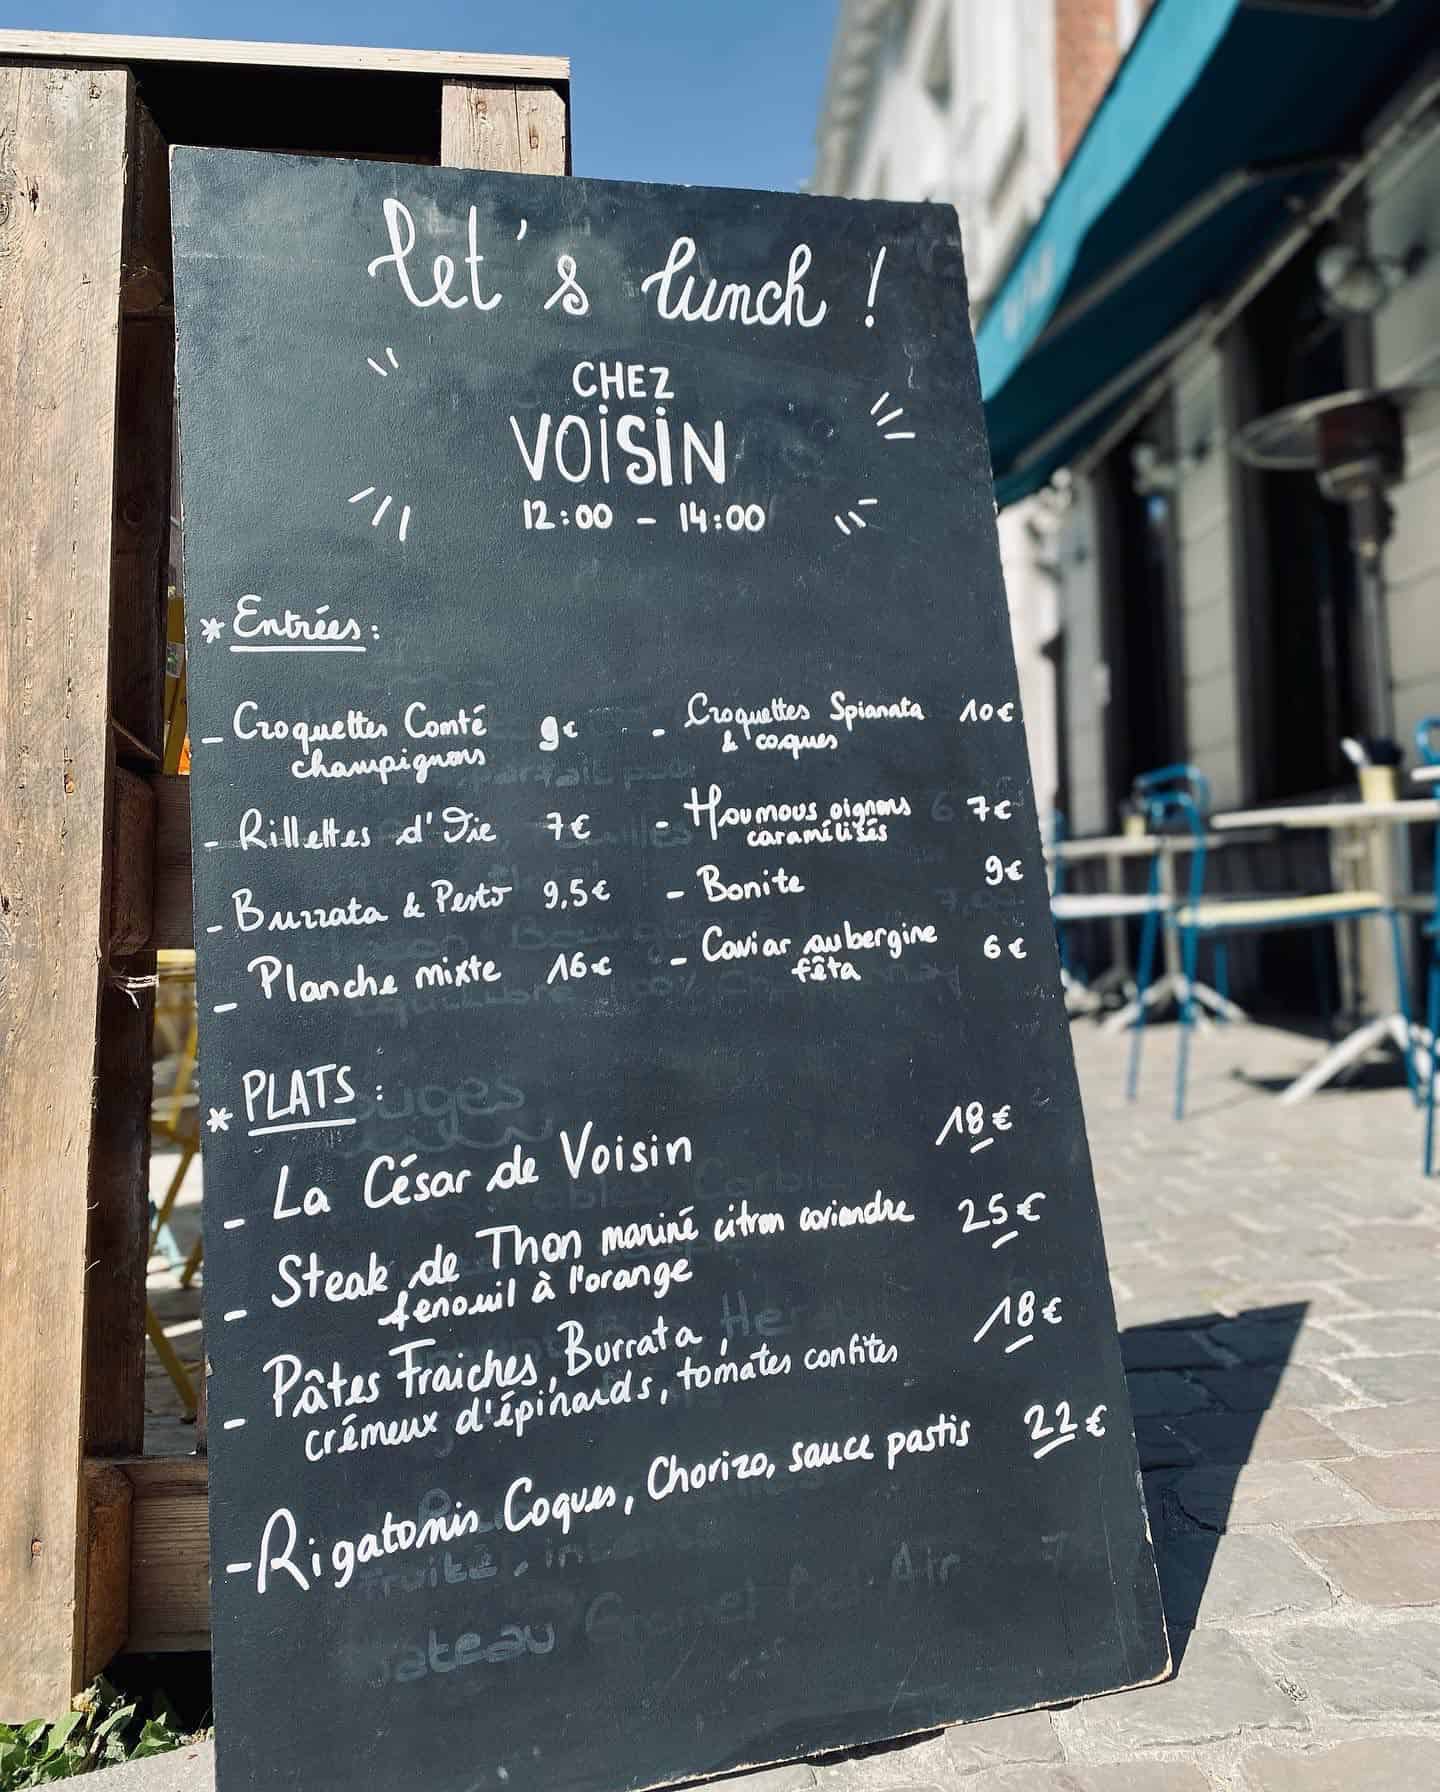 let's lunch !
CHEZ
VOISIN
12:00 - 14:00
* Entrées :
- Croquettes Comté 9€
champignons
- Rillettes d'Oie 7€
- Burrata & Pesto 9,5€
- Planche mixte 16€
- Croquettes Spianata 10€
& coques
- Houmous oignons 7€
caramélisés
- Bonite 9€
- Caviar aubergine 6€
fêta
* PLATS :
- La César de Voisin 18€
- Steak de Thon mariné citron coriandre 25€
fenouil à l'orange
- Pâtes Fraiches, Burrata, 18€
crémeux d'épinards, tomates confites
- Rigatonis Coques, Chorizo, sauce pastis 22€